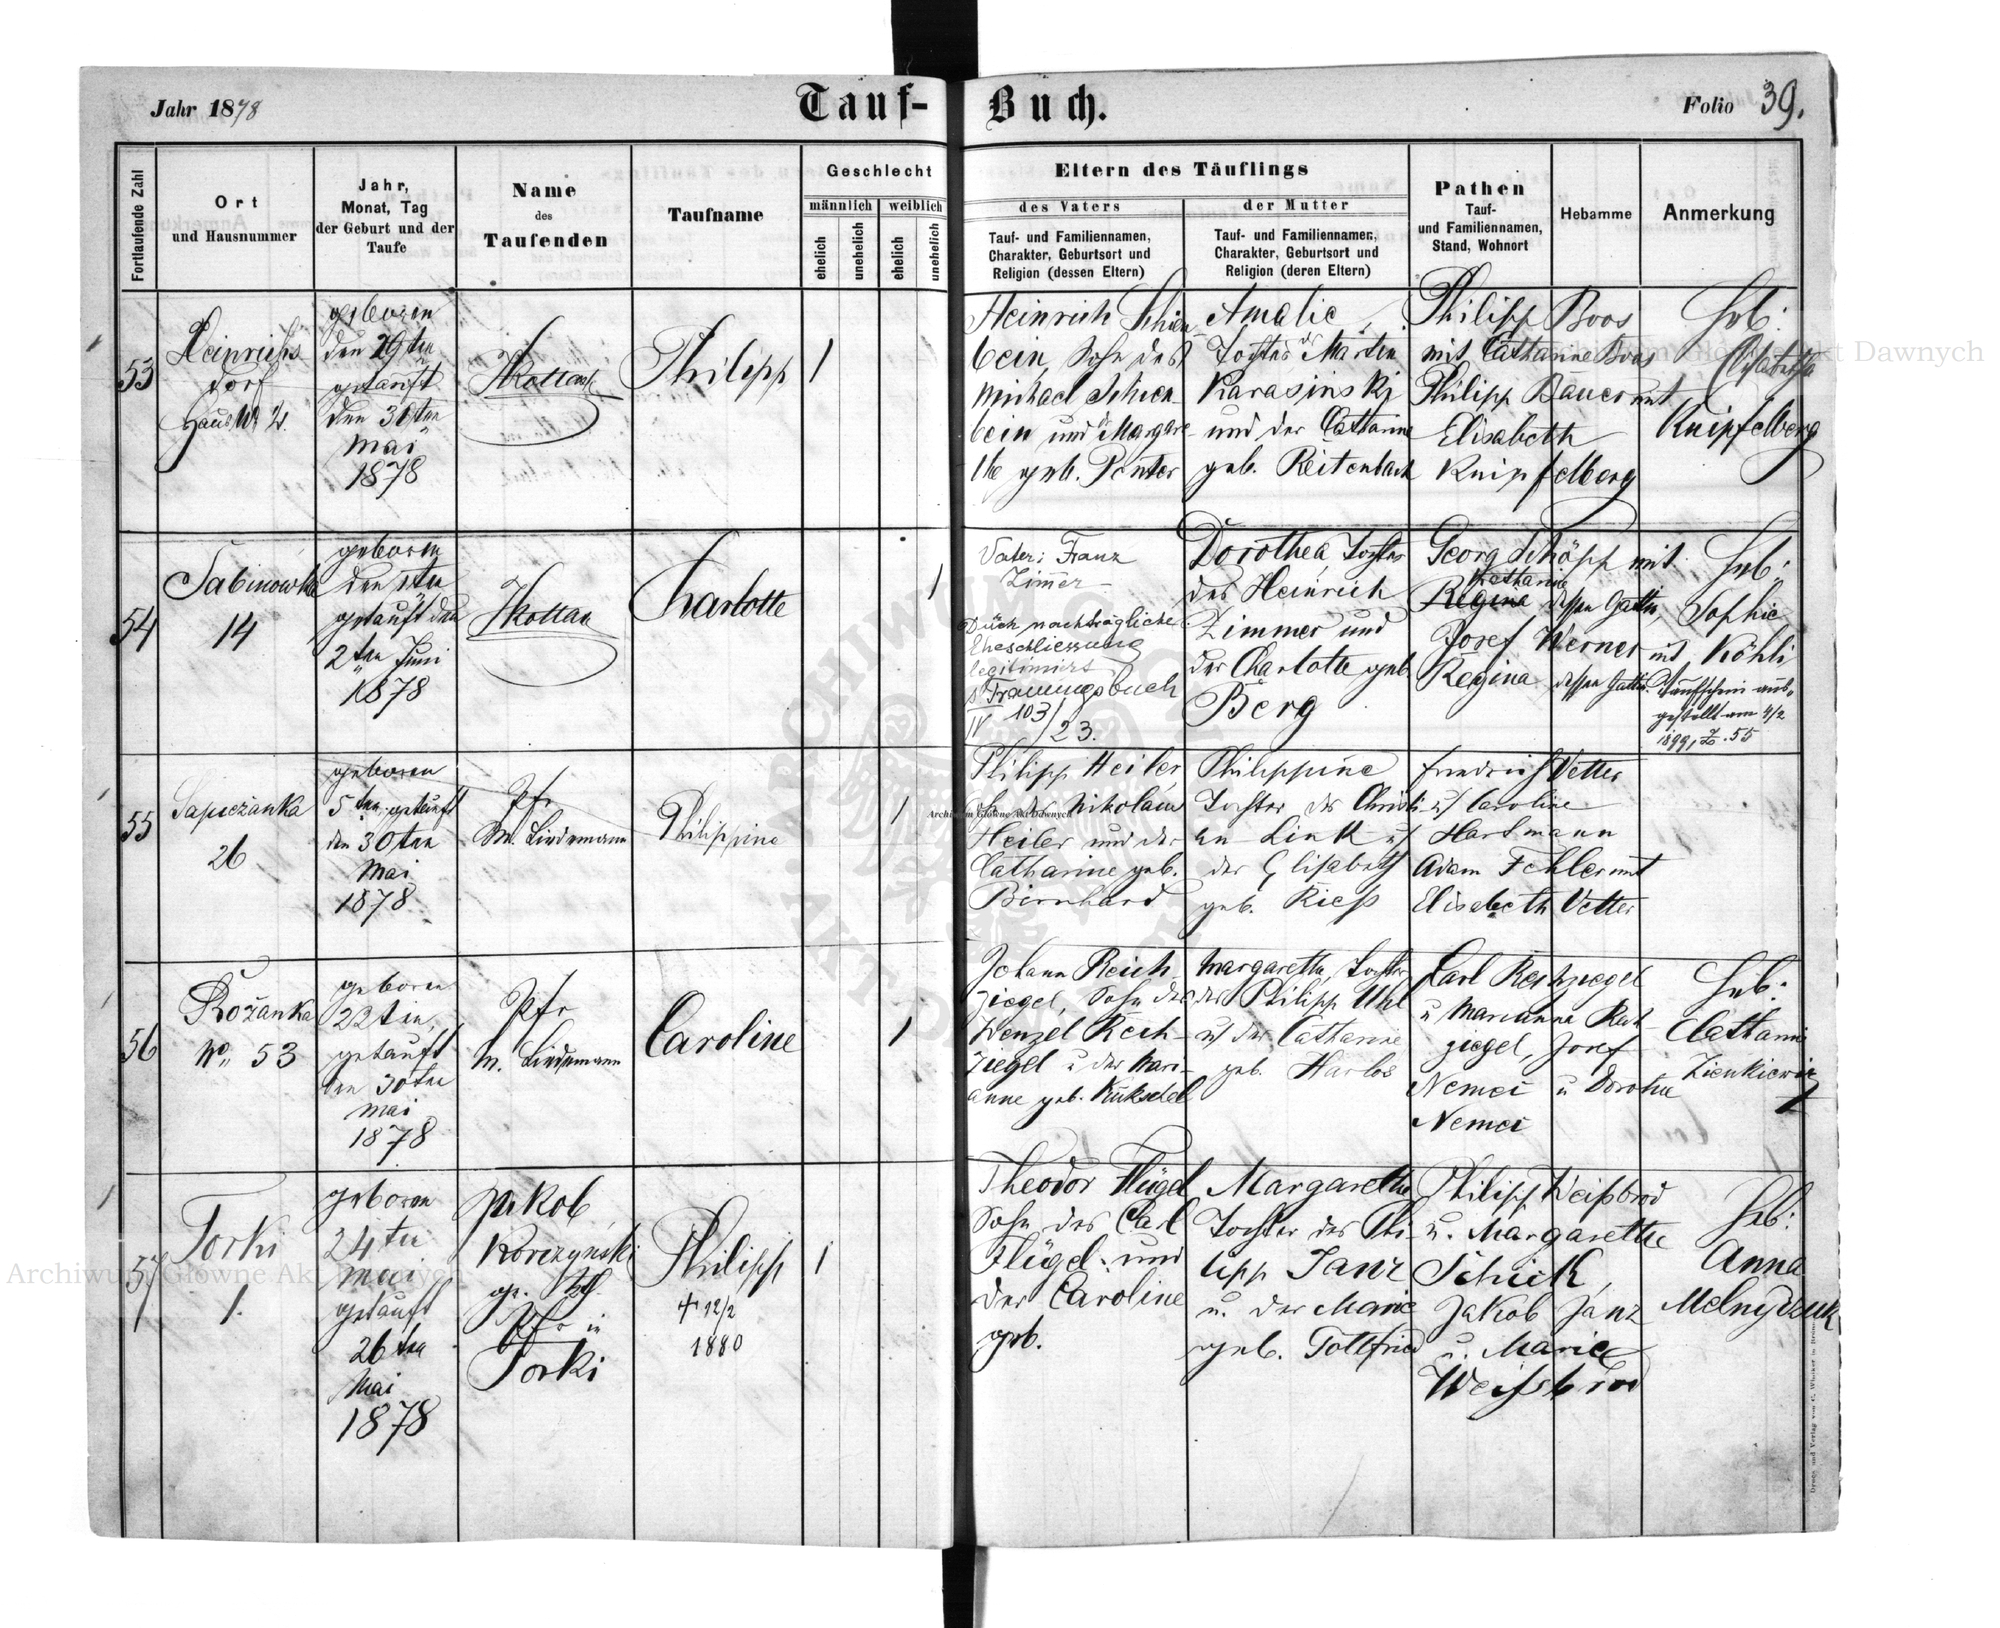 Jahr 1878
Tauf-Buch.
Folio 39.
Fortlaufende Zahl
Ort
und Hausnummer
Jahr,
Monat, Tag
der Geburt und der
Taufe
Name
des
Taufenden
Taufname
Geschlecht
männlich
weiblich
ehelich
unehelich
ehelich
unehelich
Eltern des Täuflings
des Vaters
Tauf- und Familiennamen,
Charakter, Geburtsort und
Religion (dessen Eltern)
der Mutter
Tauf- und Familiennamen,
Charakter, Geburtsort und
Religion (deren Eltern)
Pathen
Tauf-
und Familiennamen,
Stand, Wohnort
Hebamme
Anmerkung
53
Heinrichs
dorf
Haus N
geboren
den 29ten
getauft
den 30ten
Mai
1878
Philipp
1
Heinrich Schien
bein, Sohn des
Michael Schien
bein und d Margare
the geb. Penter
Amalie
Tochter des Martin
Karasinski
und der Catharine
geb. Reitenbach
Philipp Boos
mit Catharine Boos
Philipp Bauer mit
Elisabeth
Knipfelberg
Heb:
Elisabetha
Knipfelberg
54
Sabinowka
14
geboren
den 1ten
getauft den
2ten Juni
1878
Charlotte
1
Vater: Franz
Zimer
Duch nachträgliche
Eheschliessung
legitimirt
s Trauungsbuch
IV 103/23.
Dorothea, Tochter
des Heinrich
Zimmer und
der Charlotte geb.
Berg
Georg Schöpp mit
Katharina
Regina dessen Gattin,
Josef Werner mit
Regina dessen Gattin.
Heb:
Sophie
Köhli
Taufschein aus-
gestellt am 4/2
1899, Z. 55
55
Sapiezanka
26
geboren
5ten, getauft
den 30ten
Mai
1878
Pfr
M. Lindemann
Philippine
1
Philipp Heiler
Sohn des Nikolaus
Heiler und der
Catharine geb.
Birnhard
Philippine
Tochter des Christi
an Link u/
der Elisabeth
geb. Riess
Friedrich Vetter
u/ Caroline
Hartmann
Adam Fehler mit
Elisabeth Vetter
56
Rożanka
No 53
geboren
22ten,
getauft
den 30ten
Mai
1878
Pfr
M. Lindemann
Caroline
1
Johann Reich-
ziegel, Sohn des
Wenzel Reich-
ziegel u der Mari-
anne geb. Kukschel
Margaretha, Tochter
des Philipp Uhl
u/ der Catharine
geb. Harlos
Carl Reichziegel
u Marianna Reich-
ziegel, Josef
Nemei u Dorothea
Nemei
Heb:
Catharine
Zienkiewicz
57
Torki
1.
geboren
24ten
Mai
getauft
26ten
Mai
1878
Jakob
Korczynski
gr. kth
Pfr in
Torki
Philipp
† 12/2
1880
1
Theodor Flügel
Sohn des Carl
Flügel und
der Caroline
geb.
Margaretha
Tochter des Phi-
lipp Janz
u. der Marie
geb. Gottfried
Philipp Weißbrod
u. Margarethe
Schick,
Jakob Janz
u. Marie
Weissbrod
Heb:
Anna
Melnyczuk
Archiwum Główne Akt Dawnych
Archiwum Główne Akt Dawnych
Archiwum Główne Akt Dawnych